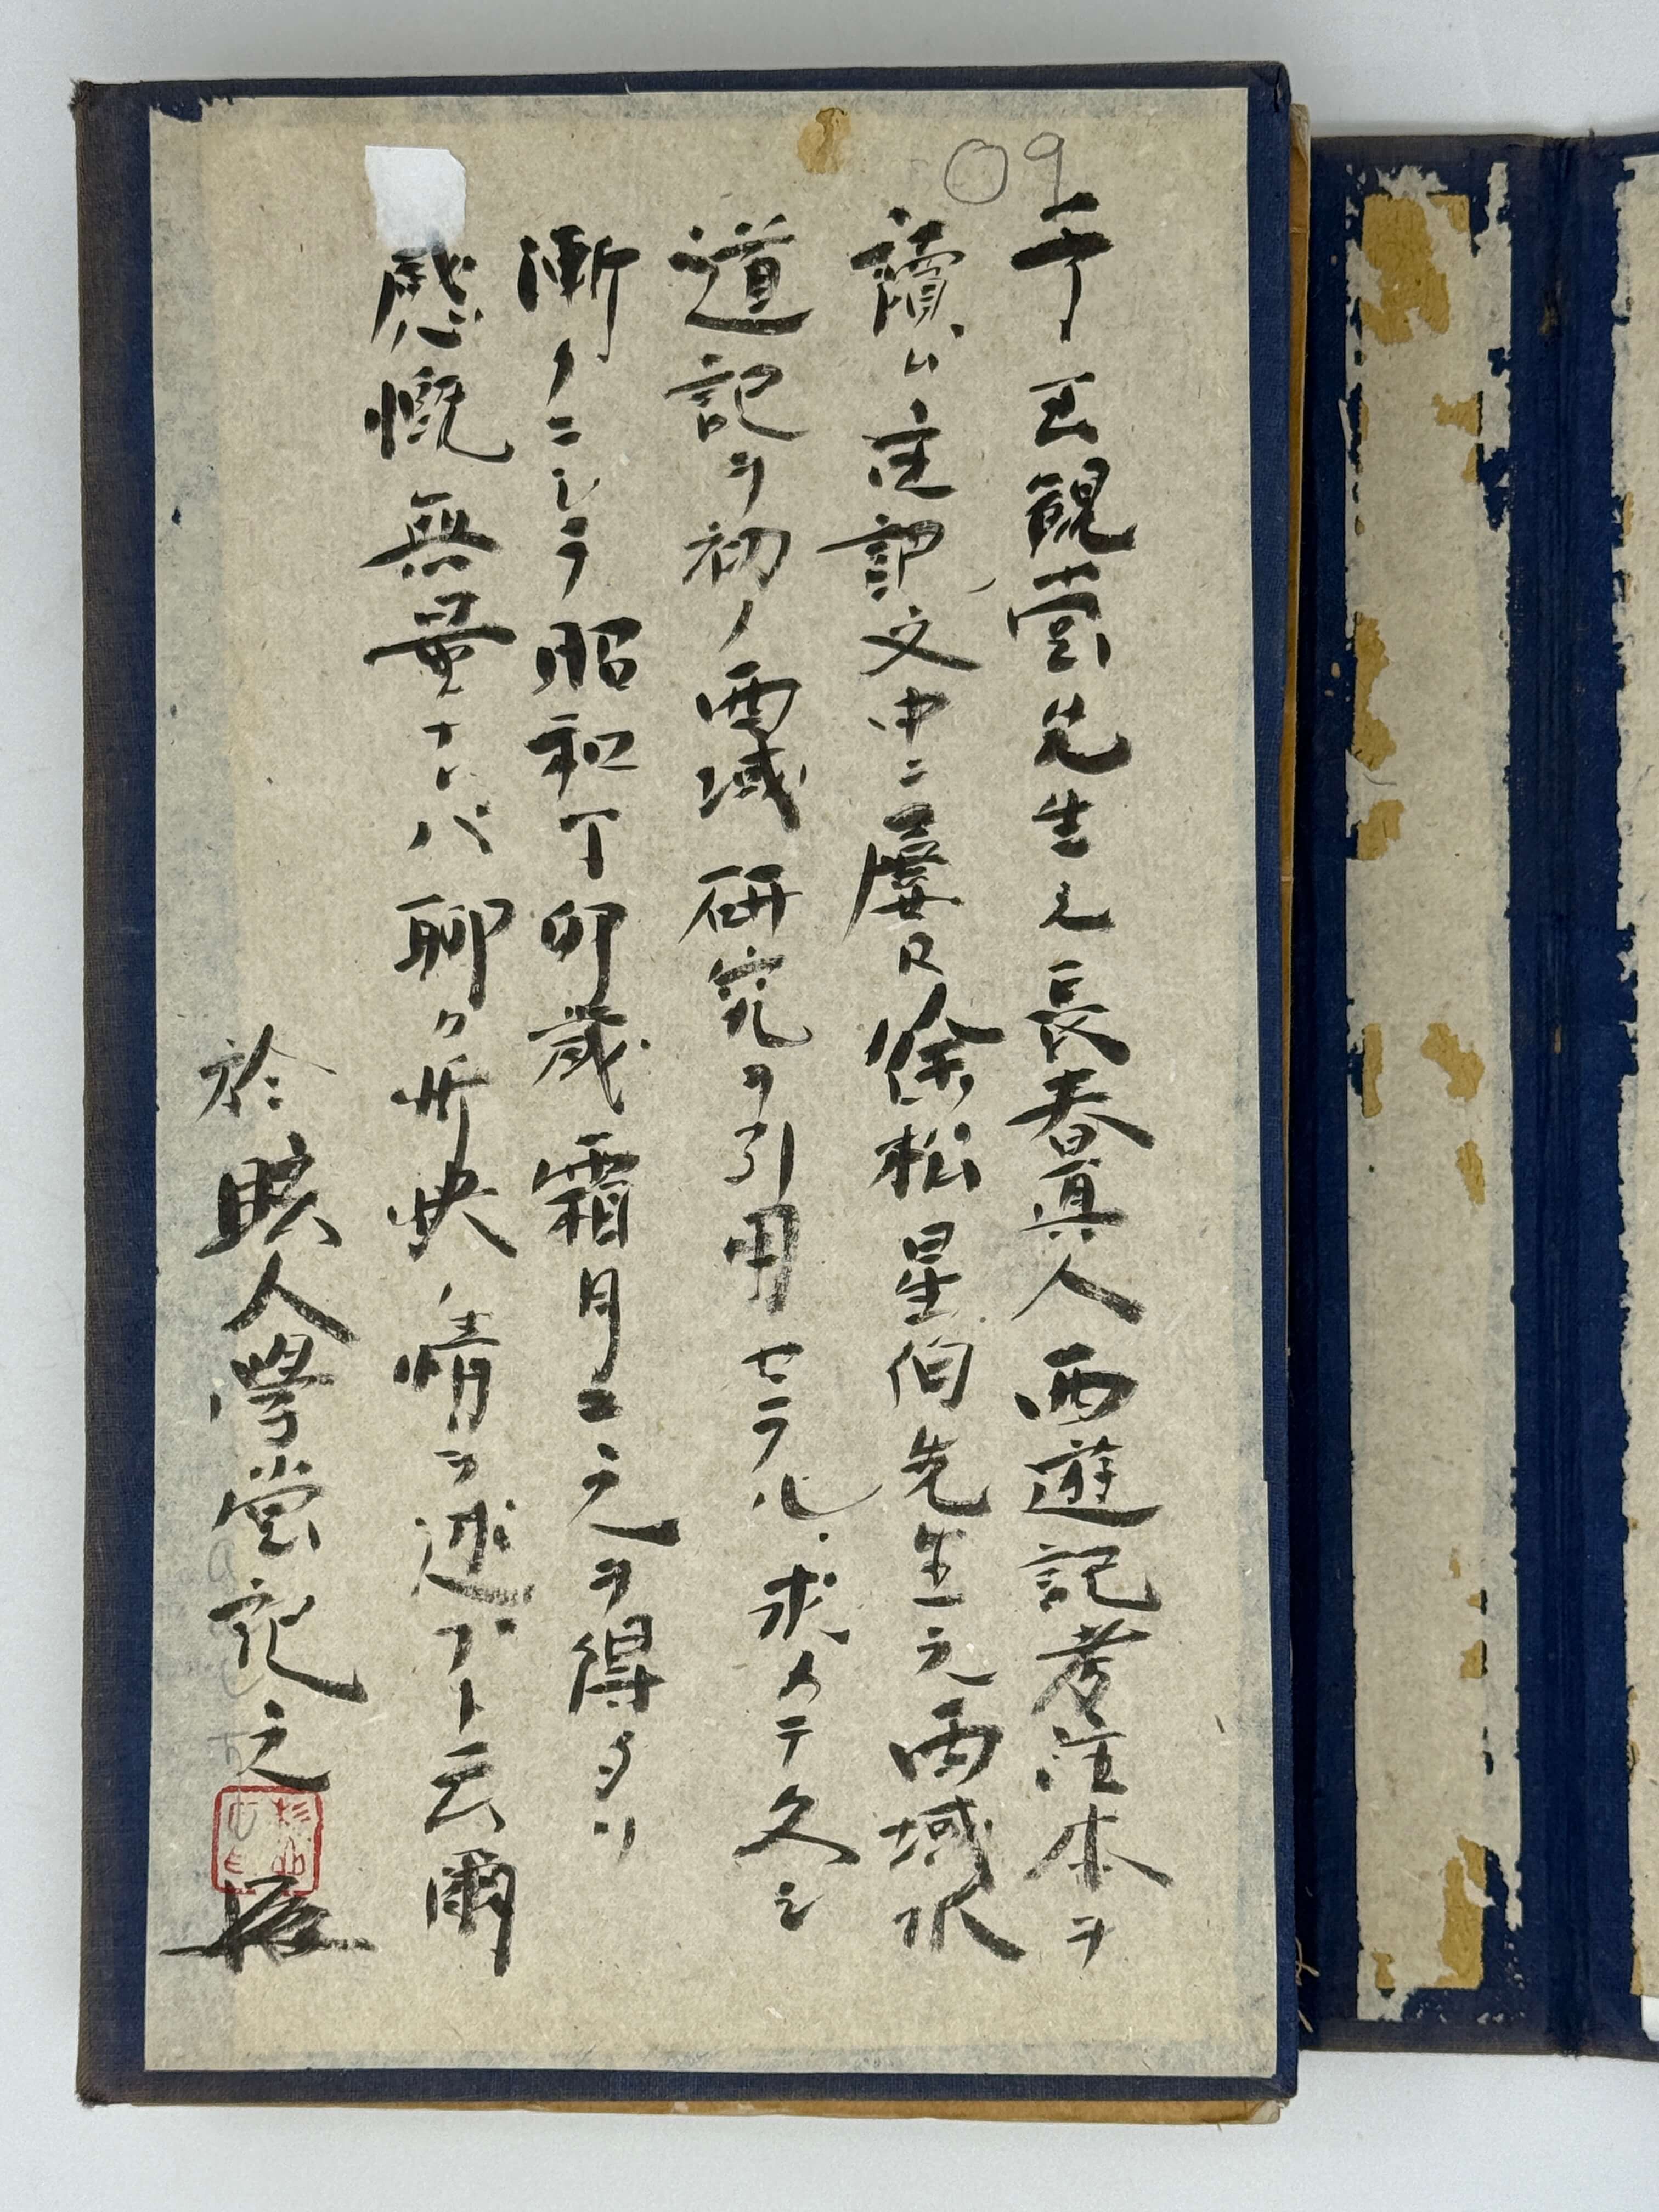 09
予王観堂先生之長春真人西遊記考注本ヲ
讀ム注記文中ニ屡〻徐松星伯先生之西域水
道記ヲ初ノ西域研究ヲ引用セラル求メテ久シ
漸クニシテ昭和丁卯歳霜月ニ之ヲ得タリ
感慨無量ナレバ聊カ快ノ情ヲ述ブト云爾
於 人學堂記之